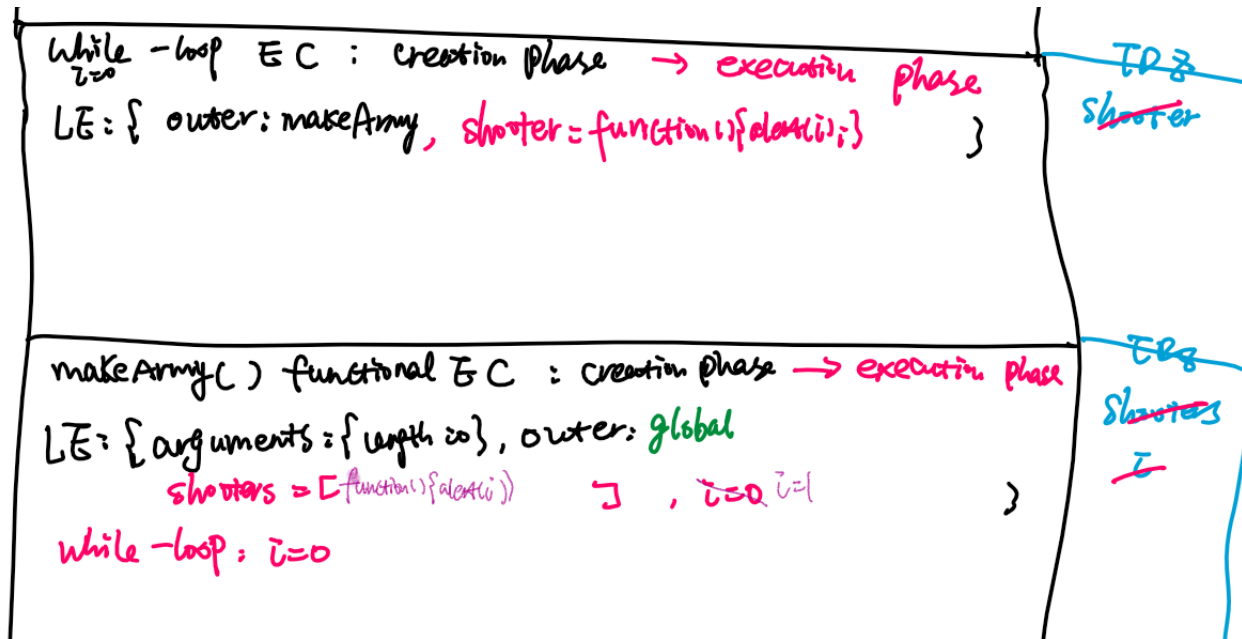 while-loop EC : creation phase → execution phase
i=0
TDZ
LE: { outer: makeArmy, shooter = function(){alert(i);} }
shooter
makeArmy() functional EC : creation phase → execution phase
TDZ
LE: {arguments: {length: 0}, outer: global
shooters
shooters = [function(){alert(i)} ] , i=0 i=1 }
i
while-loop: i=0